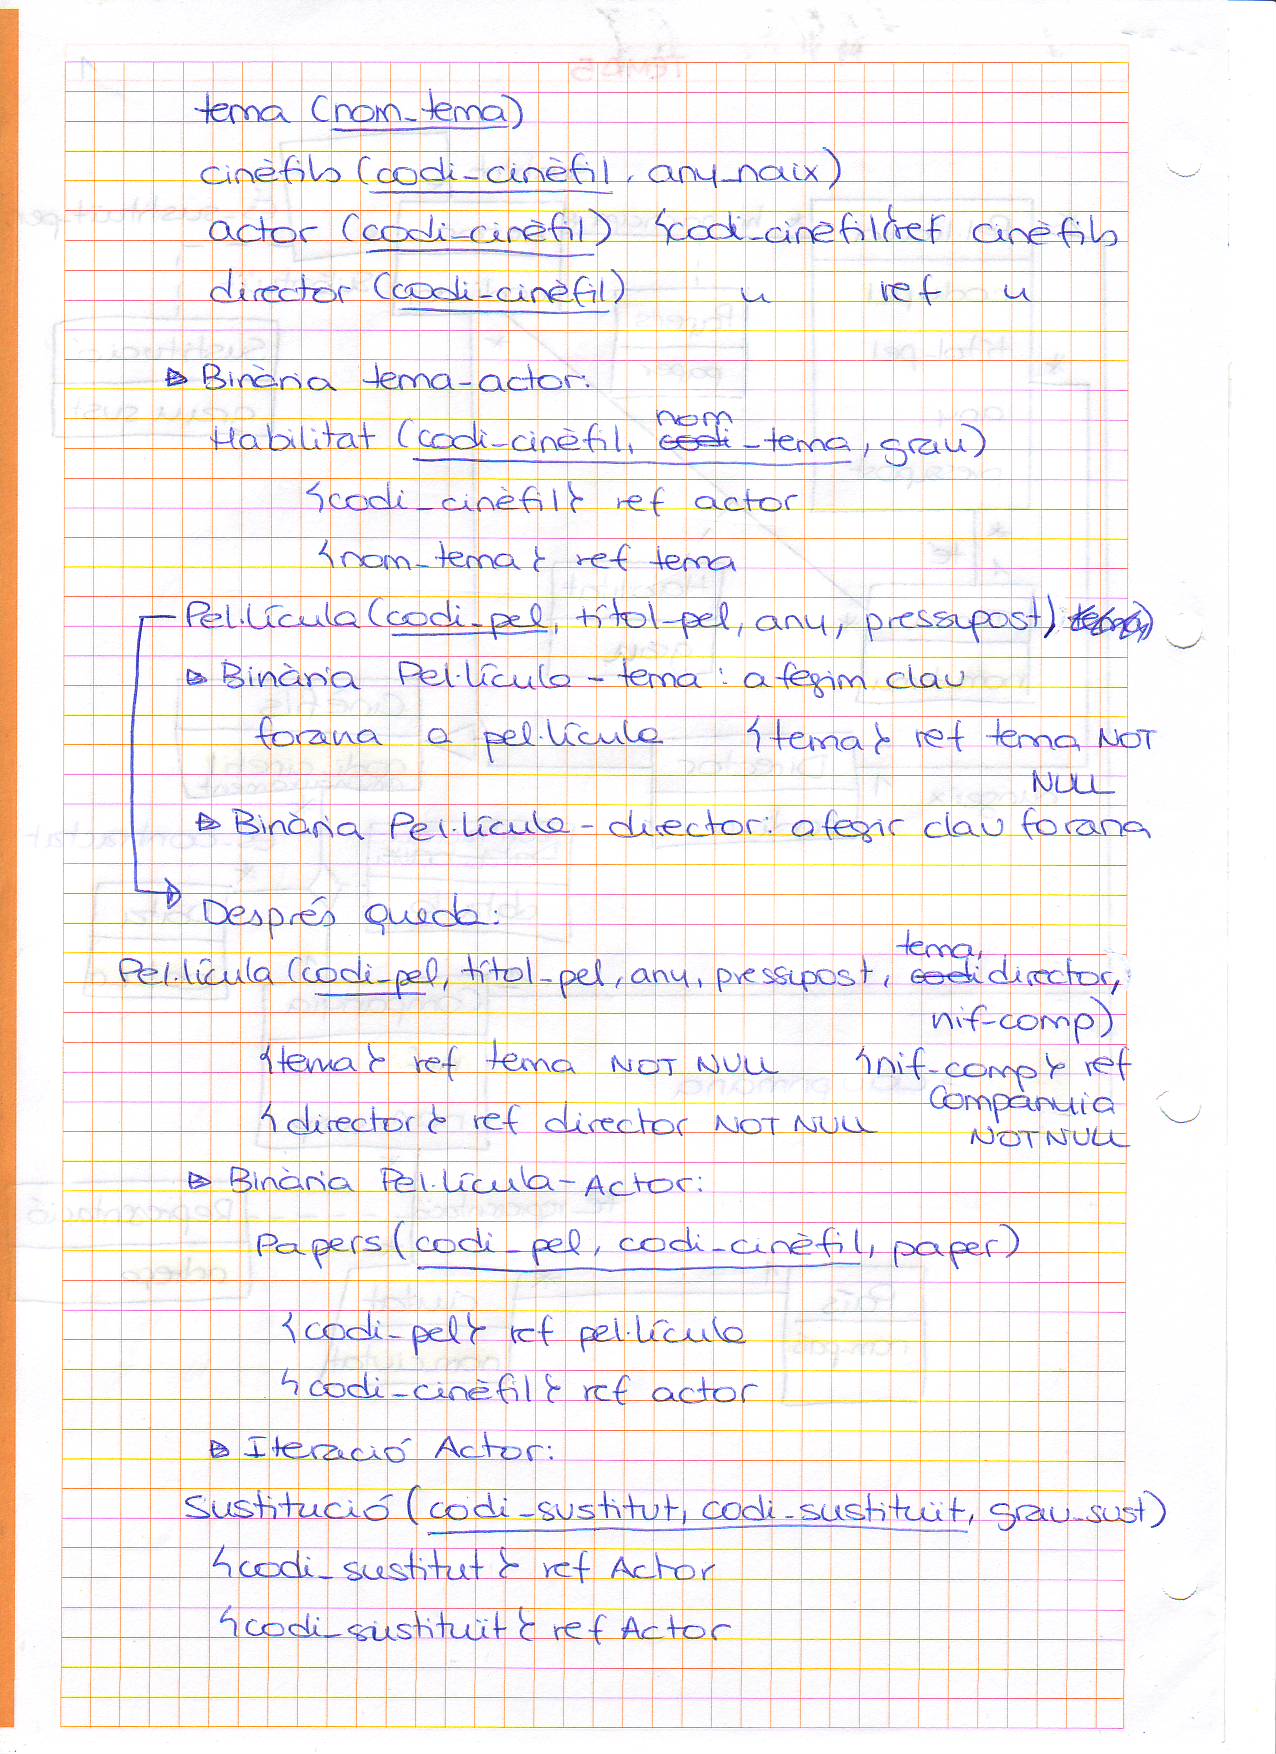 tema (nom_tema)
cinèfils (codi-cinèfil, any_naix)
actor (codi-cinèfil) {codi-cinèfil} ref cinèfils
director (codi-cinèfil) " ref "
▷ Binària tema-actor:
Habilitat (codi-cinèfil, codi nom-tema, grau)
{codi_cinèfil} ref actor
{nom_tema} ref tema
Pel·lícula (codi-pel, títol-pel, any, pressupost)
▷ Binària Pel·lícula - tema: afegim clau
forana a pel·lícula {tema} ref tema NOT
NULL
▷ Binària Pel·lícula - director: afegir clau forana
Després queda:
Pel·lícula (codi-pel, títol-pel, any, pressupost, tema, codi director,
nif-comp)
{tema} ref tema NOT NULL {nif-comp} ref
Companyia
{director} ref director NOT NULL NOT NULL
▷ Binària Pel·lícula-Actor:
Papers (codi_pel, codi-cinèfil, paper)
{codi-pel} ref pel·lícula
{codi-cinèfil} ref actor
▷ Iteració Actor:
Sustitució (codi_sustitut, codi_sustituït, grau_sust)
{codi_sustitut} ref Actor
{codi_sustituït} ref Actor